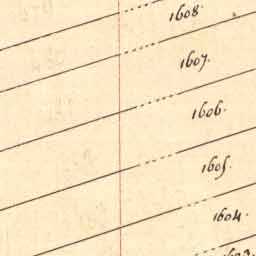 1608.
1607.
1606.
1605.
1604.
1603.